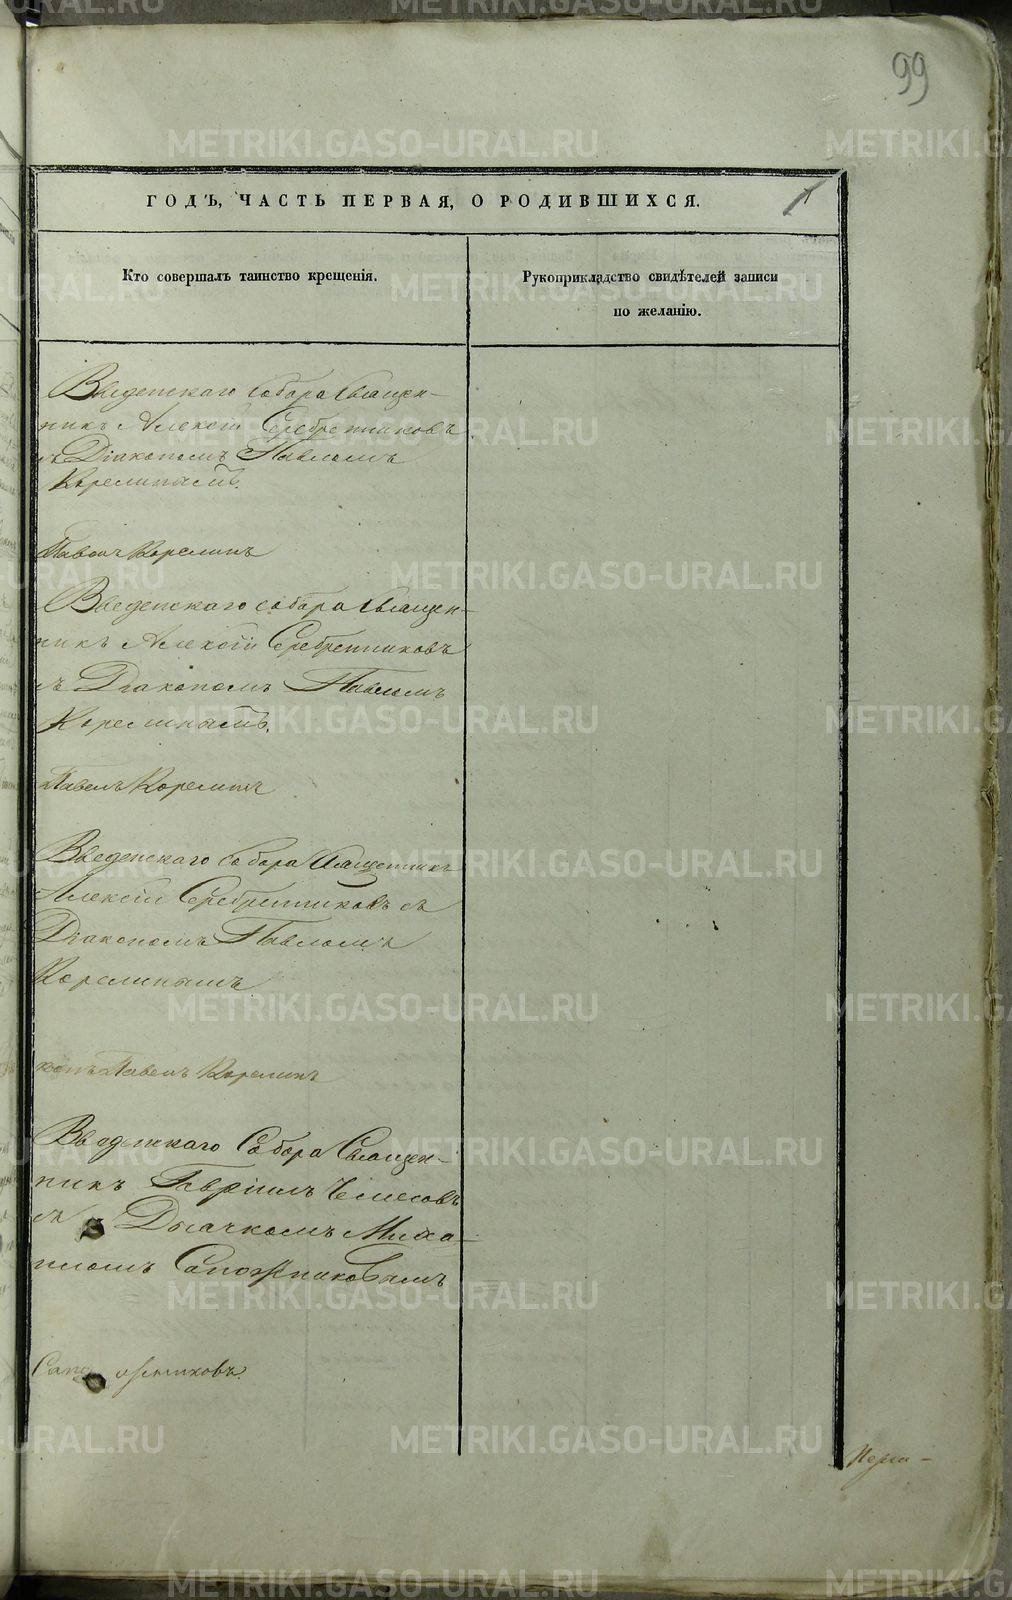 99
ГОДЪ, ЧАСТЬ ПЕРВАЯ, О РОДИВШИХСЯ.
Кто совершалъ таинство крещенія.
Рукоприкладство свидѣтелей записи
по желанію.
Введенскаго собора Священ-
никъ Алексій Серебренниковъ
съ Діакономъ Павломъ
Корелинымъ.
Павелъ Корелинъ
Введенскаго собора Священ-
никъ Алексій Серебренниковъ
съ Діакономъ Павломъ
Корелинымъ.
Павелъ Корелинъ
Введенскаго собора Священникъ
Алексій Серебренниковъ съ
Діакономъ Павломъ
Корелинымъ
Павелъ Корелинъ
Введенскаго Собора Священ-
никъ Гавріилъ
съ Дьячкомъ Миха-
иломъ Сапожниковымъ
Сапожниковъ.
METRIKI.GASO-URAL.RU